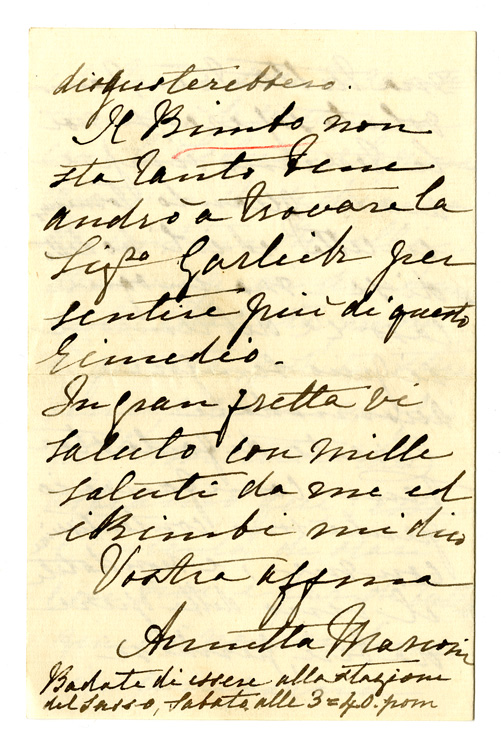 disgusterebbero.
Il Bimbo non
sta tanto bene
andrò a trovare la
Sig.ra Garlick per
sentire più di questo
rimedio.
In gran fretta vi
saluto con mille
saluti da me ed
i Bimbi mi dico
Vostra affma
Annetta Marconi
Badate di essere alla stazione
del Sasso, Sabato, alle 3=40. pom